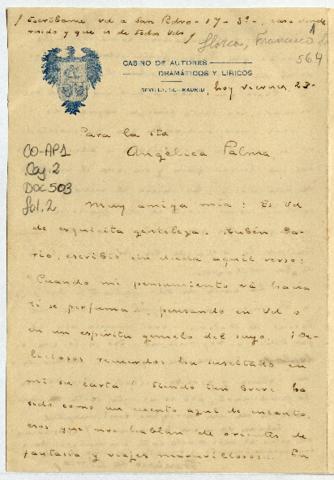 (Escríbame Vd a San Pedro - 17 - 3º -, casa donde
resido y que es de todos Vds)
Llorca, Francisco
564
CASINO DE AUTORES
DRAMÁTICOS Y LÍRICOS
SEVILLA, - MADRID
hoy viernes 23 -
Para la sta
Angélica Palma
CO-AP1
Caj. 2
DOC 503
fol. 2
Muy amiga mia: Es Vd
de exquisita gentileza. Rubén Da-
rio, escribió sin duda aquel verso:
"Cuando mi pensamiento vá hacia
ti se perfuma", pensando en Vd o
en un espíritu gemelo del suyo. ¡De-
liciosos recuerdos ha suscitado en
mi su carta! Siendo tan breve ha
sido como un cuento azul de encanto,
esos que nos hablan de orientes de
fantasia y viajes maravillosos. En